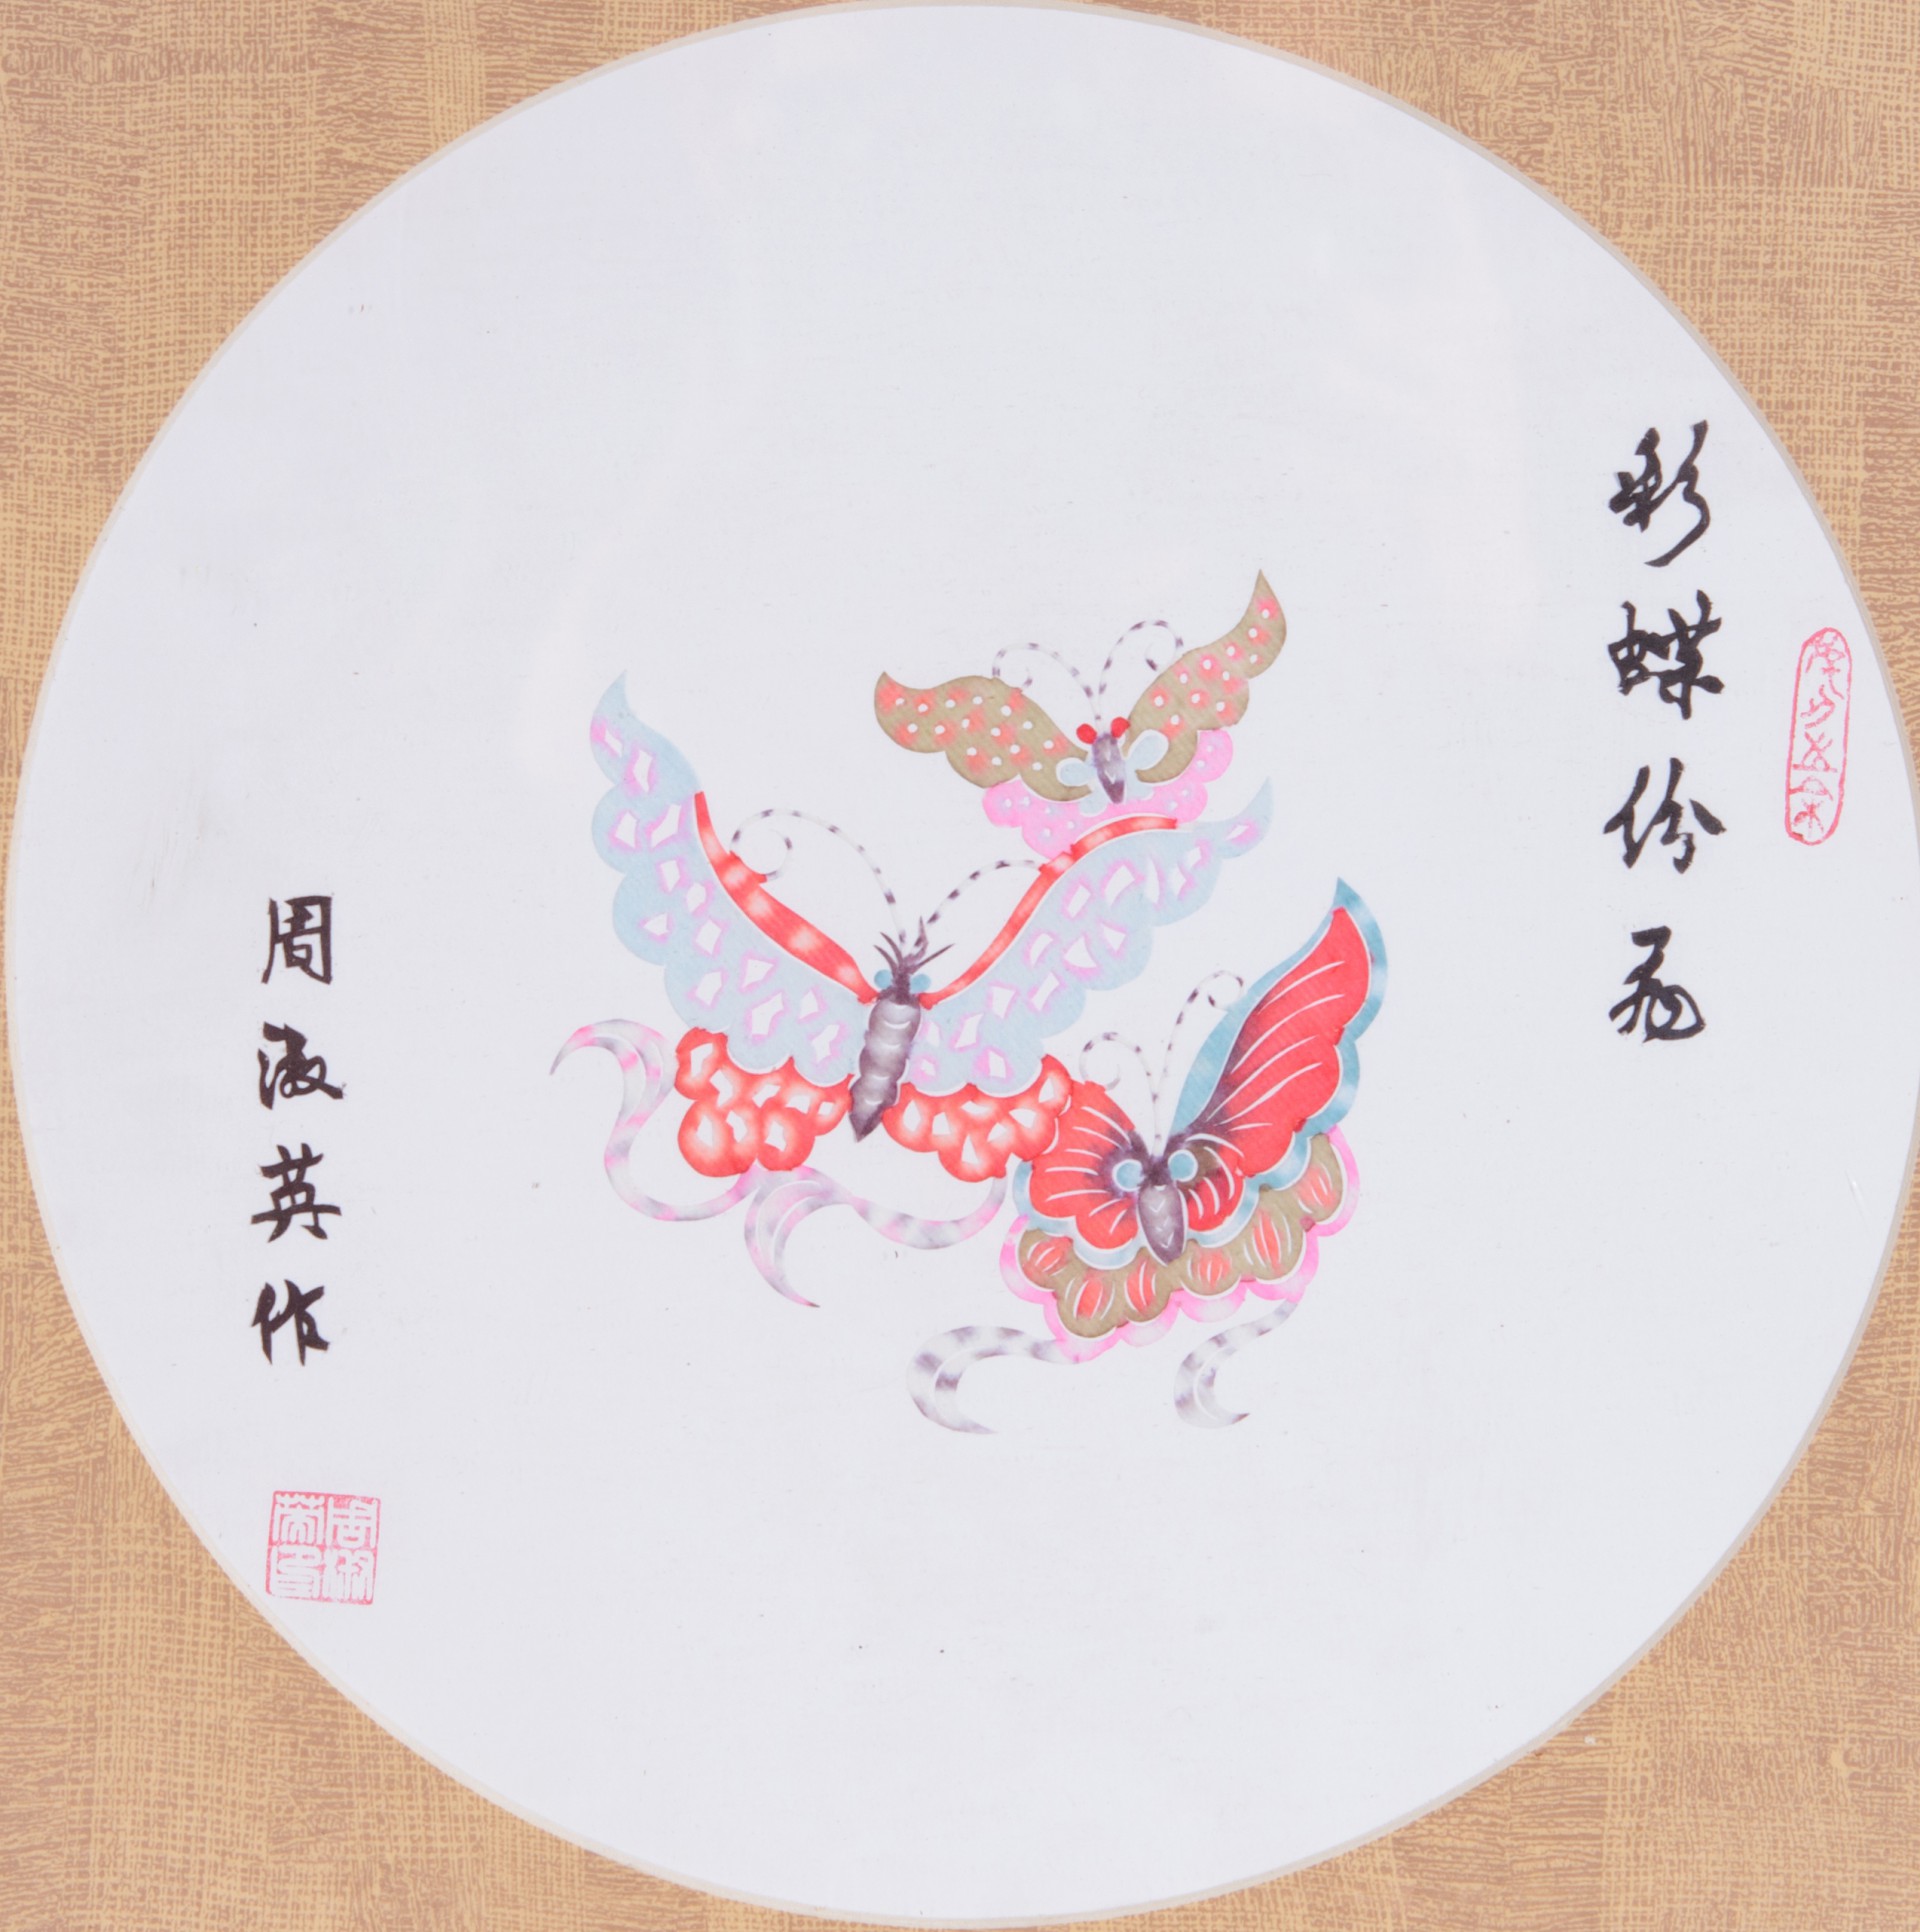 彩蝶纷飞
周淑英作